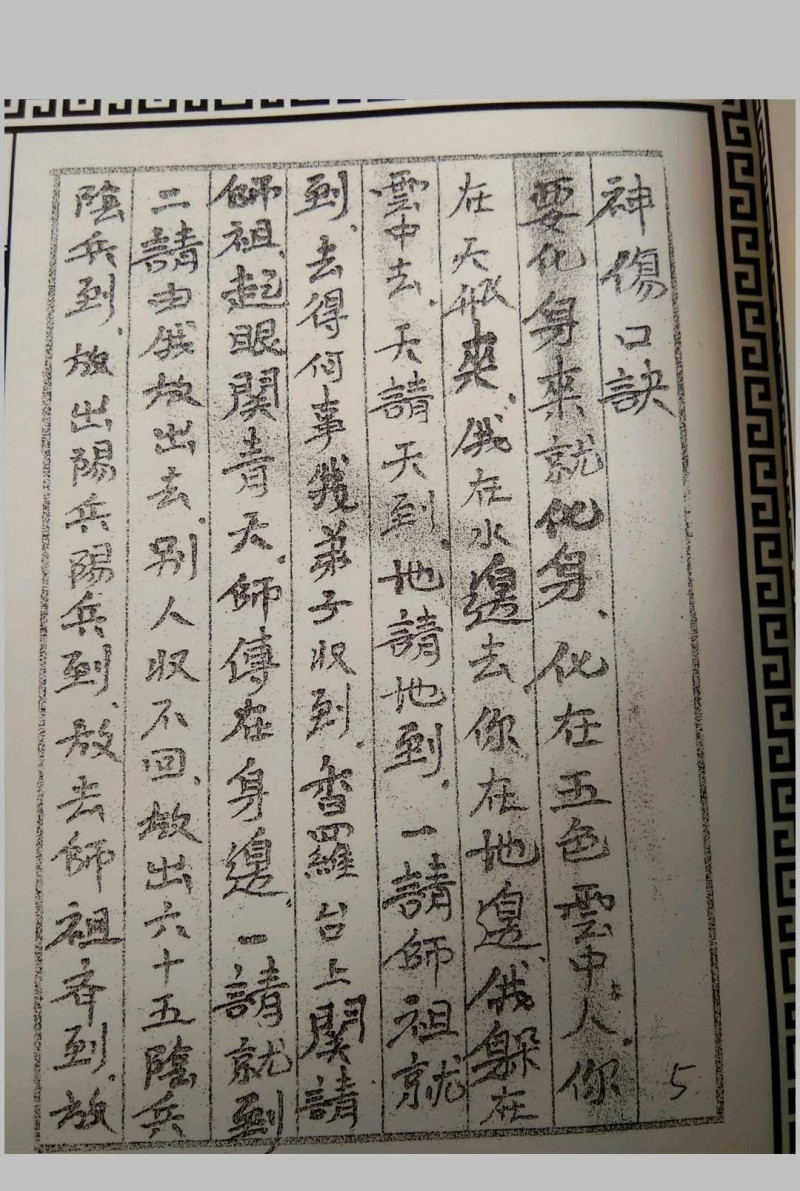 神傷口訣
要化身來就化身、化在五色雲中人、你
在天邊來、俄在水邊去你在地邊、俄躲在
雲中去、天請天到、地請地到、一請師祖就
到、去得何事我弟子收到、香羅台上関請
師祖、起眼関青天、師傅在身邊、一請就到
二請由俄放出去、别人収不回、放出六十五陰兵
陰兵到、放出陽兵陽兵到、放去師祖齐到、放
5